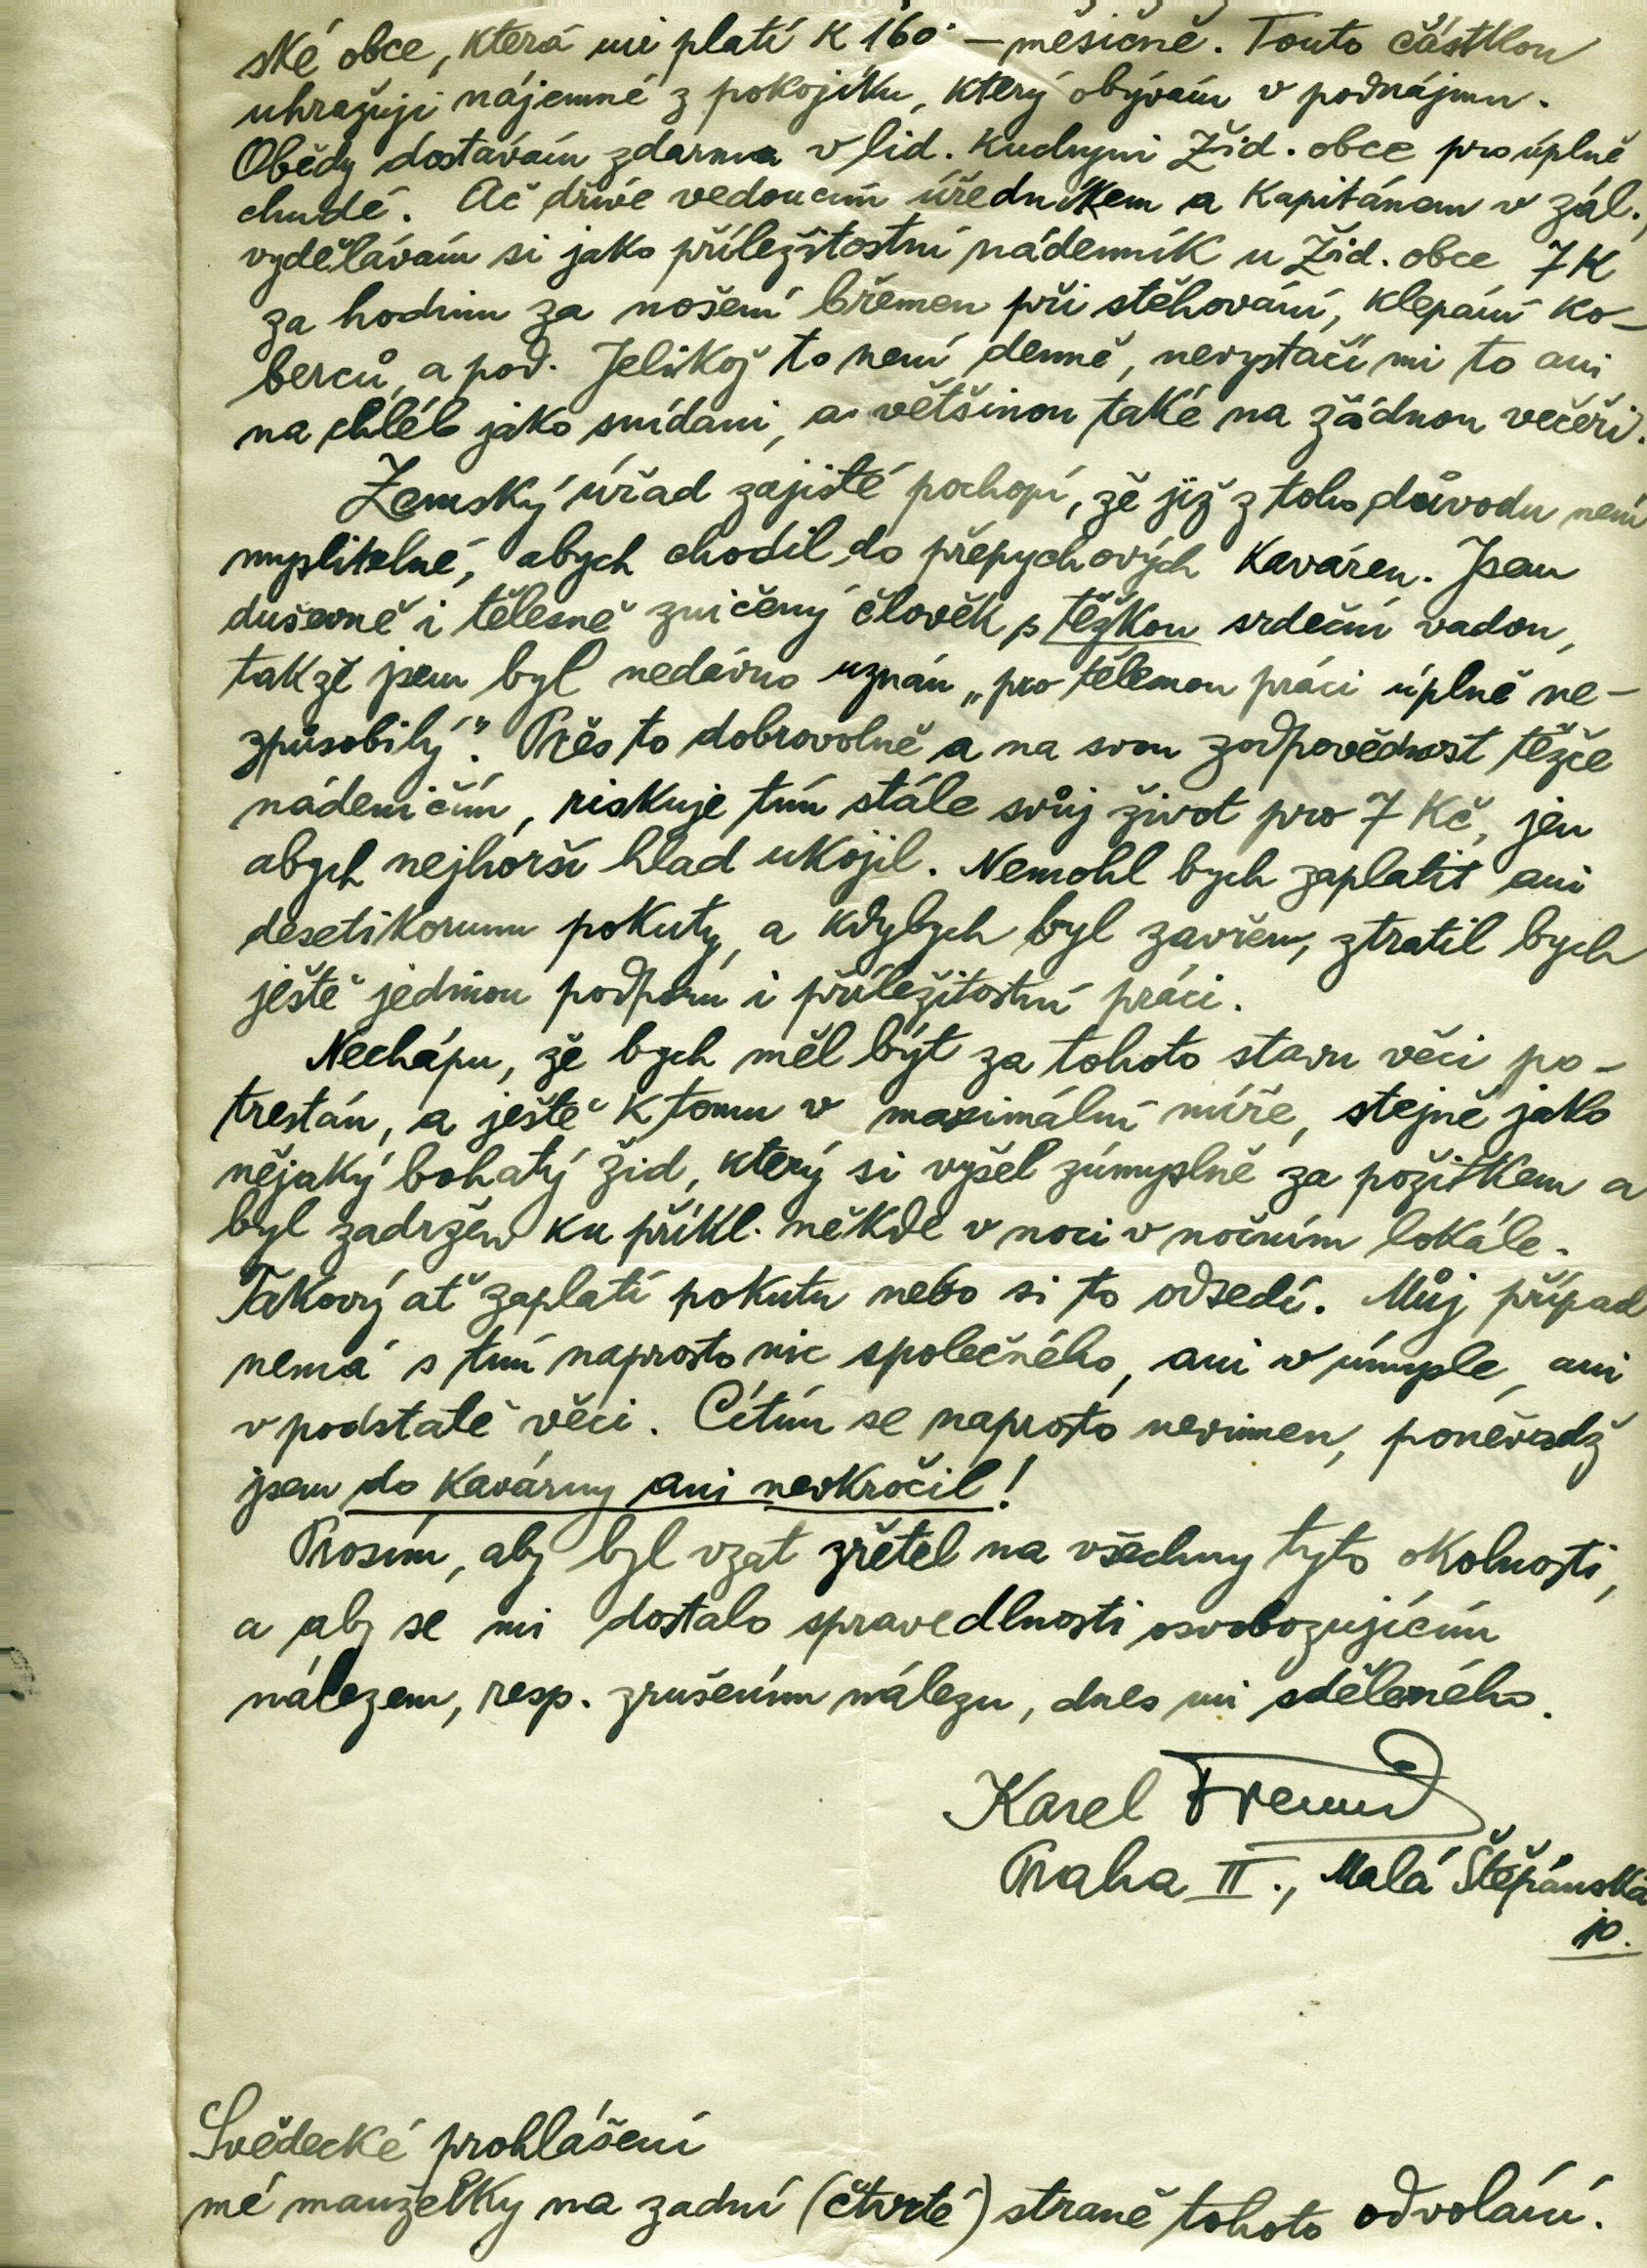 ské obce, která mi platí K 160·— měsičně. Touto částkou
uhražuji nájemné z pokojíku, který obývám v podnájmu.
Obědy dostávám zdarma v lid. kuchyni žid. obce pro úplně
chudé. Ač dříve vedoucím úředníkem a kapitánem v zál.,
vydělávám si jako příležitostní nádenník u Žid. obce 7 K
za hodinu za nošení břemen při stěhování, klepání ko-
berců, a pod. Jelikož to není denně, nevystačí mi to ani
na chléb jako snídani, a většinou také na žádnou večeři.
Zemský úřad zajisté pochopí, že již z toho důvodu není
myslitelné, abych chodil do přepychových kaváren. Jsem
duševně i tělesně zničený člověk s těžkou srdeční vadou,
takže jsem byl nedávno uznán „pro tělesnou práci úplně ne-
způsobilý". Přes to dobrovolně a na svou zodpovědnost těžce
nádeničím, riskuje tím stále svůj život pro 7 Kč, jen
abych nejhorší hlad ukojil. Nemohl bych zaplatit ani
desetikorunu pokuty, a kdybych byl zavřen, ztratil bych
ještě jedinou podporu i příležitostní práci.
Nechápu, že bych měl být za tohoto stavu věci po-
trestán, a ještě k tomu v maximální míře, stejně jako
nějaký bohatý žid, který si vyšel zúmyslně za požitkem a
byl zadržen ku příkl. někde v noci v nočním lokále.
Takový ať zaplatí pokutu nebo si to odsedí. Můj případ
nemá s tím naprosto nic společného, ani v úmysle, ani
v podstatě věci. Cítím se naprosto nevinen, poněvadž
jsem do kavárny ani nevkročil!
Prosím, aby byl vzat zřetel na všechny tyto okolnosti,
a aby se mi dostalo spravedlnosti osvobozujícím
nálezem, resp. zrušením nálezu, dnes mi sděleného.
Karel Freund
Praha II., Malá Štěpánská
10.
Svědecké prohlášení
mé manželky na zadní (čtvrté) straně tohoto odvolání.